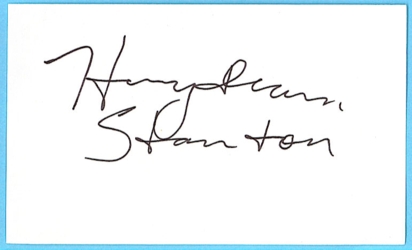 Harry Dean
Stanton